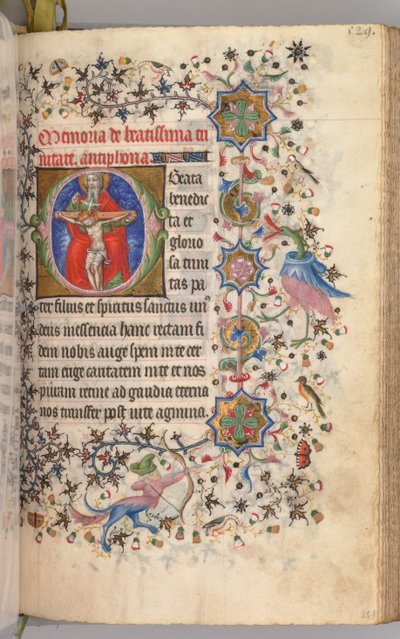 529.
Memoria de beatissima tri
nitate. antiphona.
O Beata
benedic
ta et
glorio
sa trini
tas pa
ter filius et spiritus sanctus un'
deus in essencia hanc rectam fi
dem nobis auge spem in te cer
tam euge caritatem in te et nos
retine ad gaudia eterna
nos transfer post uite agmina.